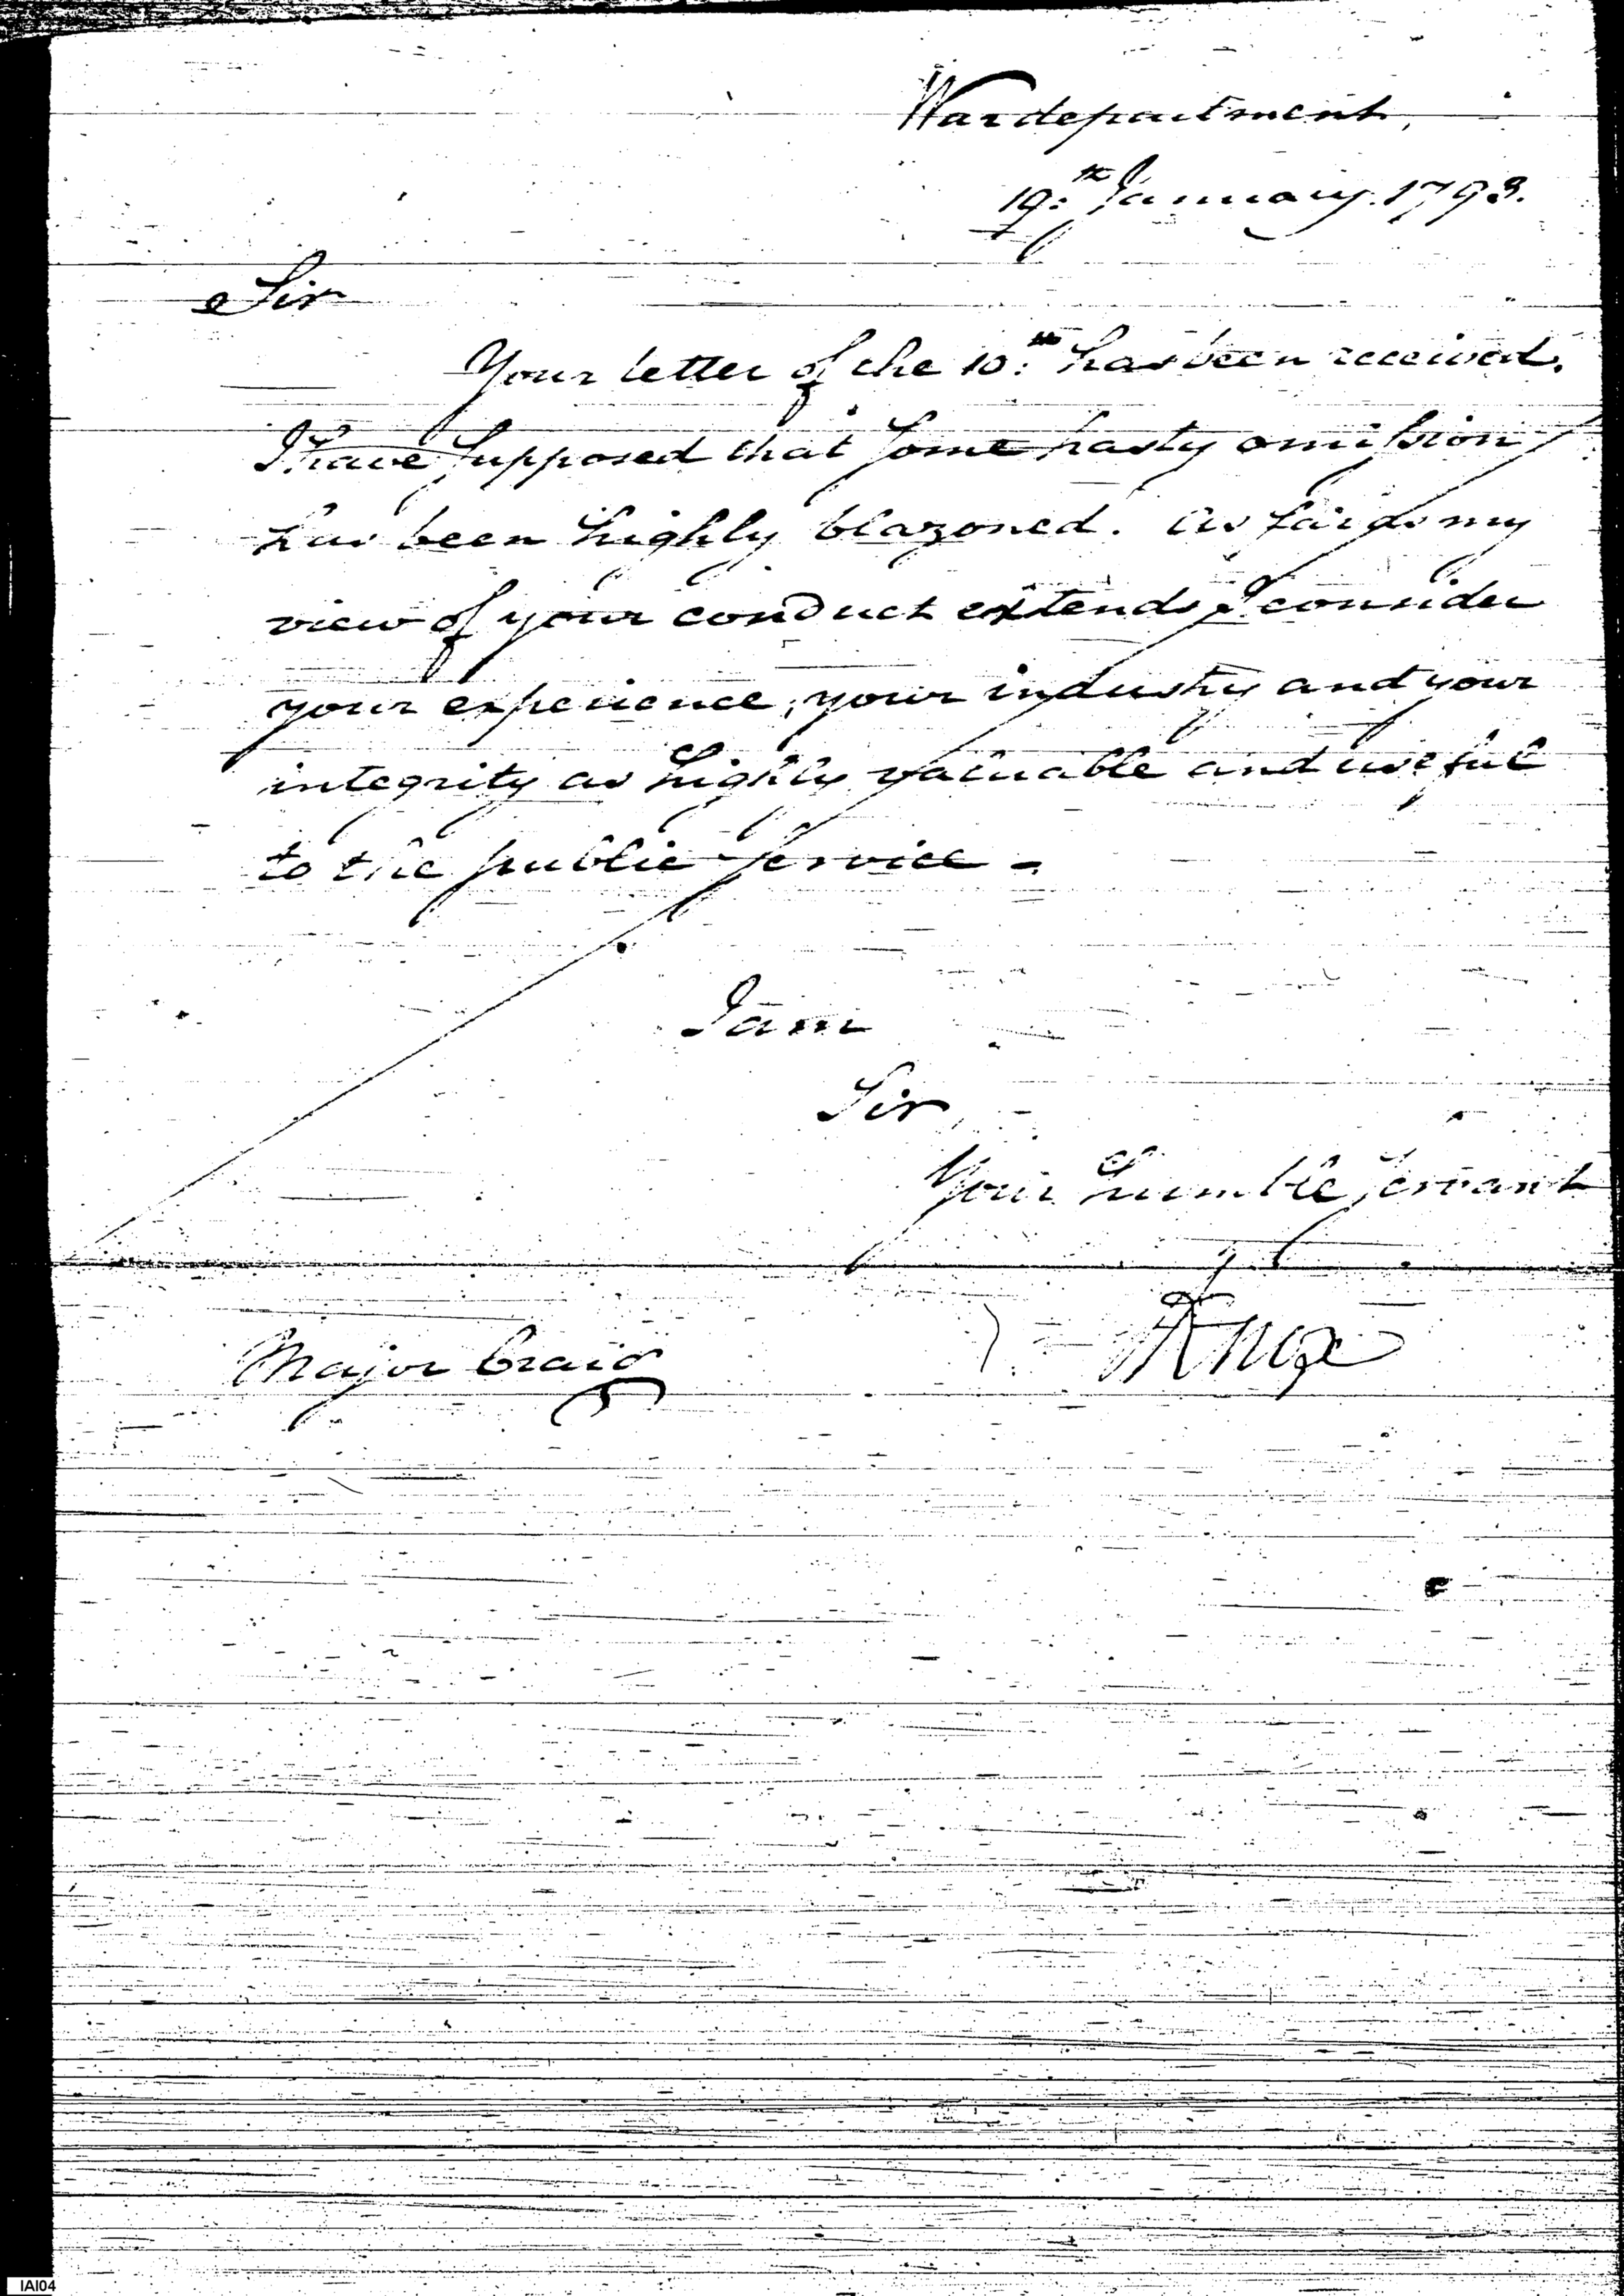 War department,
19:th January. 1793.
Sir
Your letter of the 10:th has been received.
I have supposed that some hasty omission
has been highly blazoned. As far as my
view of your conduct extends I consider
your experience, your industry and your
integrity as highly valuable and useful
to the public service -
I am
Sir
Your humble servant
HKnox
Major Craig
IAI04